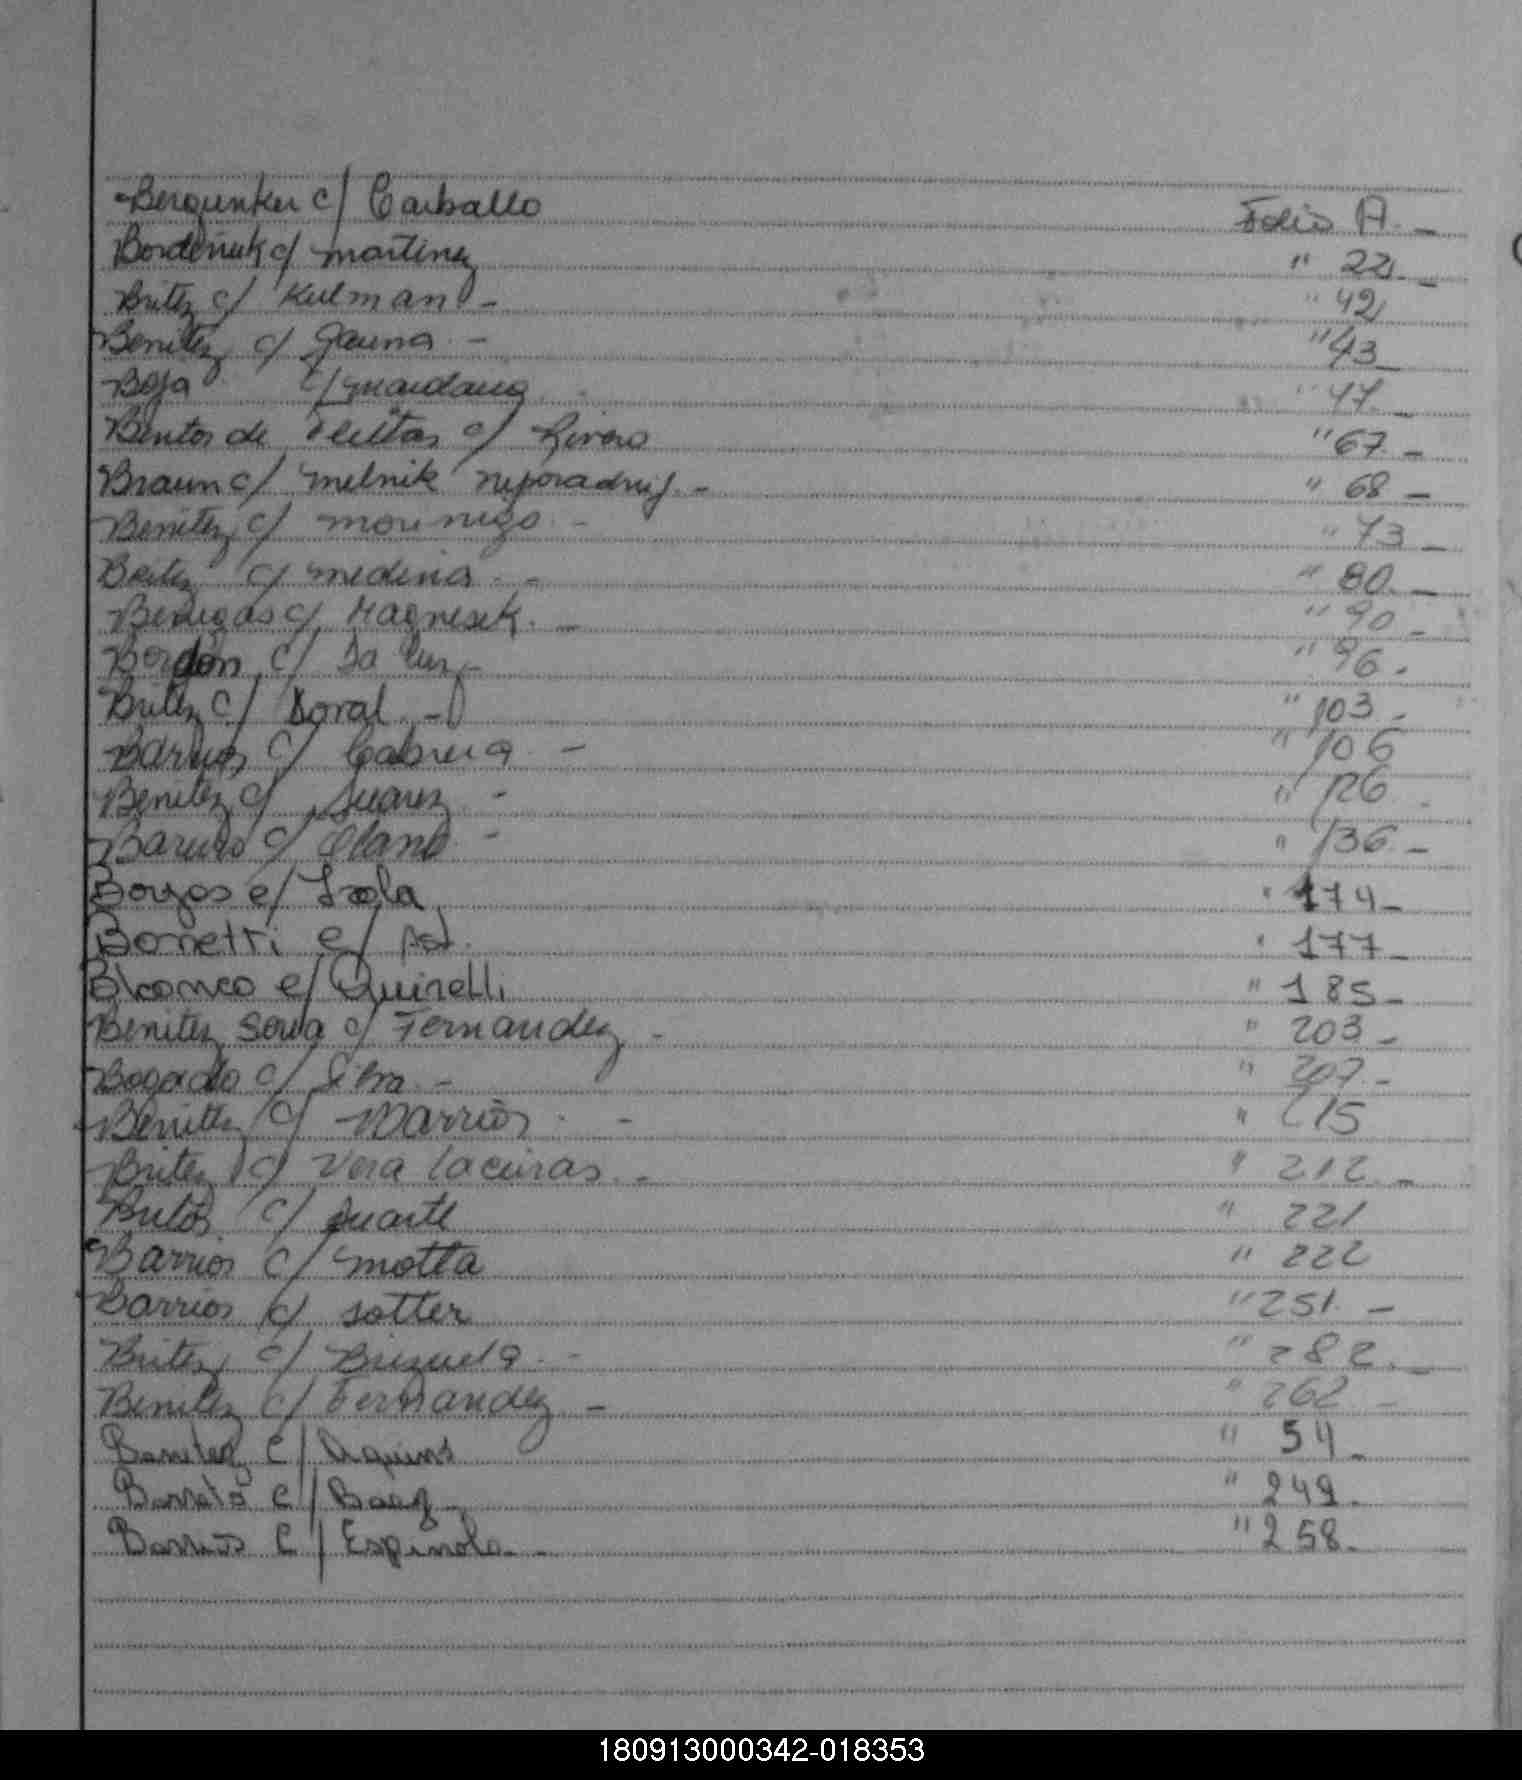 Bergunker c/ Carballo Folio A. -
Bordeñuk c/ martinez " 22. -
Britez c/ Kulman - " 42
Benitez c/ Gauna. - " 43
Boja c/ maidana " 47. -
Bentos de Fleitas c/ Rivero " 67. -
Braun c/ melnik neporadnij. - " 68 -
Benitez c/ morinigo. - " 73 -
Beitez c/ medina. - " 80. -
Benegas c/ Magnesek. - " 90 -
Bordon c/ Da luz - " 96. -
Britez c/ Doral - " 103 -
Barrios c/ Cabrera - " 106
Benitez c/ Suarez - " 126 -
c/ - " 136. -
Borjas c/ " 174 -
Bonetti c/ " 177 -
Blanco c/ Quirelli " 185 -
Benitez Soria c/ Fernandez - " 203 -
Bogado c/ Silva - " 207. -
Benitez c/ Barrios - " 215
Britez c/ Vera - " 212. -
Britos c/ Duarte " 221
Barrios c/ motta " 222
Barrios c/ sotter " 251. -
Britez c/ Brizuela. - " 282. -
Benitez c/ Fernandez - " 262. -
Benitez c/ Aquino " 54 -
Barreto c/ Baez - " 249.
Barrios c/ Espinola - " 258.
180913000342-018353